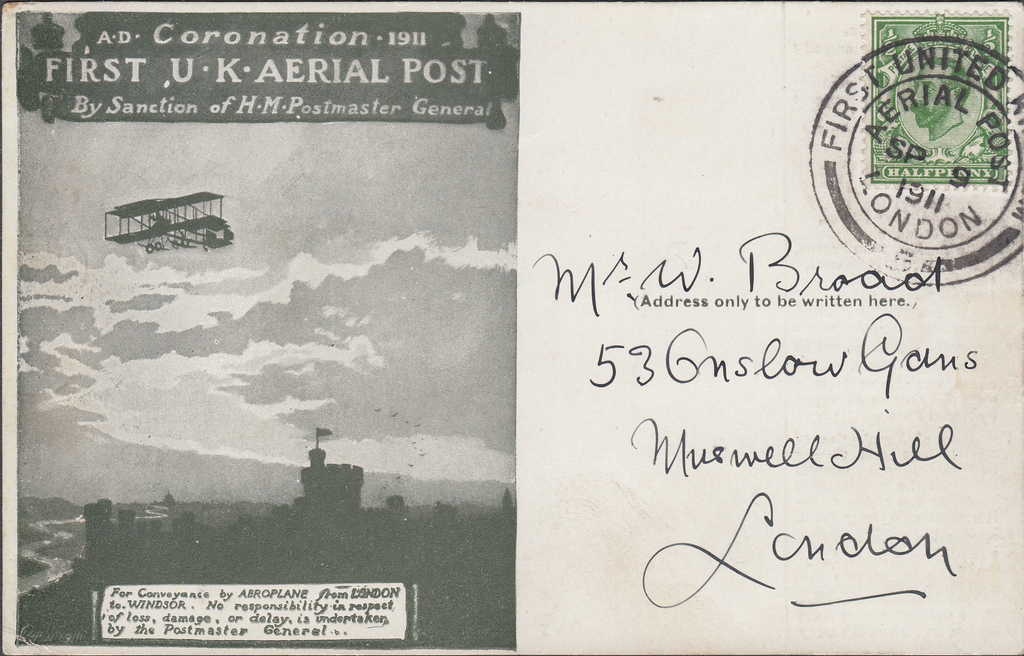 A·D· Coronation · 1911
FIRST U·K·AERIAL POST
By Sanction of H·M·Postmaster General
For Conveyance by AEROPLANE from LONDON
to WINDSOR. No responsibility in respect
of loss, damage, or delay, is undertaken
by the Postmaster General.
HALFPENNY
FIRST UNITED
AERIAL POST
SP 9
1911
LONDON
Mr W. Broad
(Address only to be written here.)
53 Onslow Gdns
Muswell Hill
London